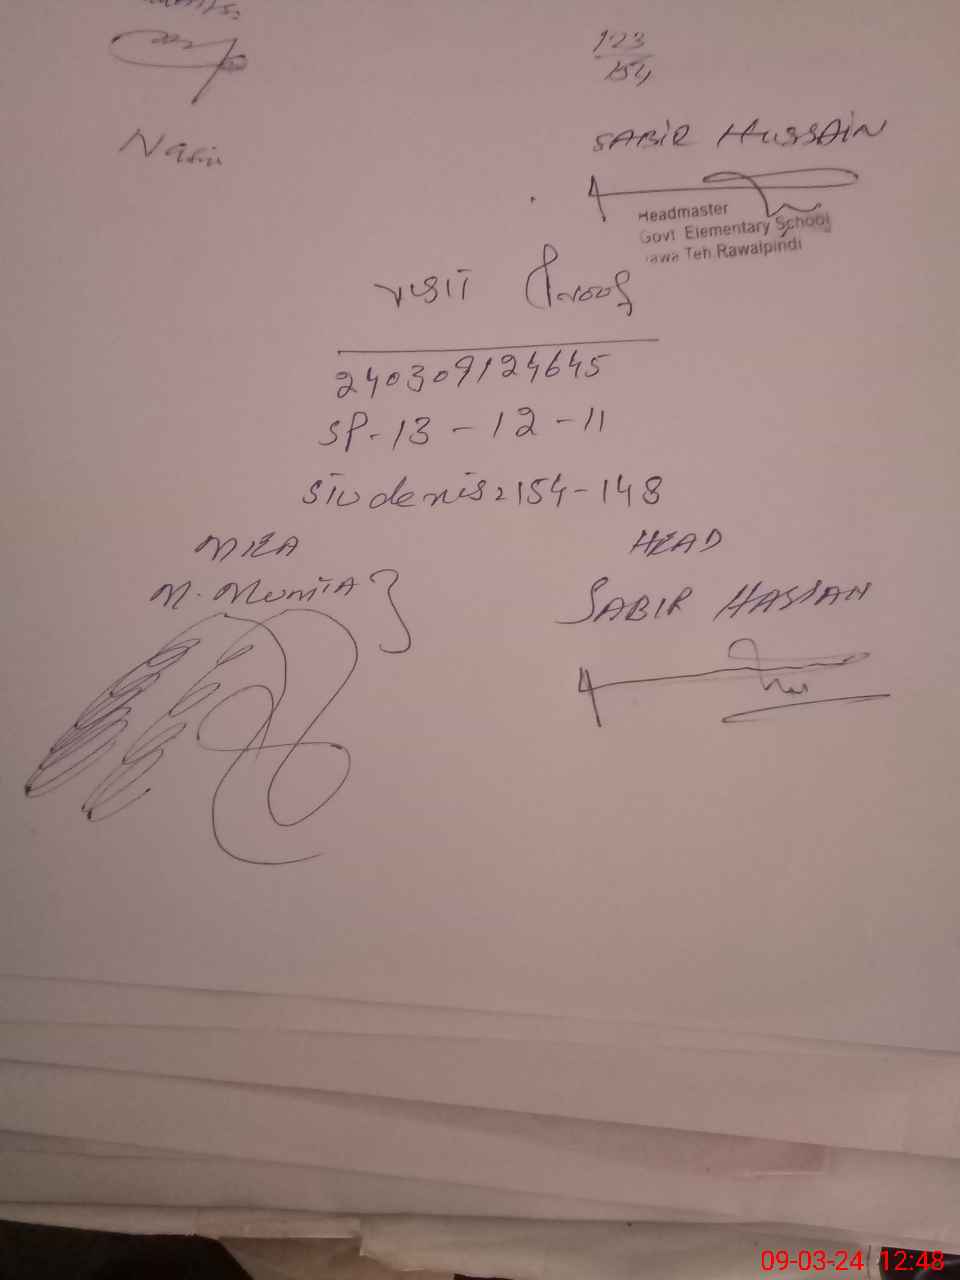 123
154
SABIR HUSSAIN
Headmaster
Govt Elementary School
Teh. Rawalpindi
VISIT Proof
240309124645
SP-13-12-11
Students 154-148
MEA
HEAD
SABIR HASSAN
09-03-24 12:48